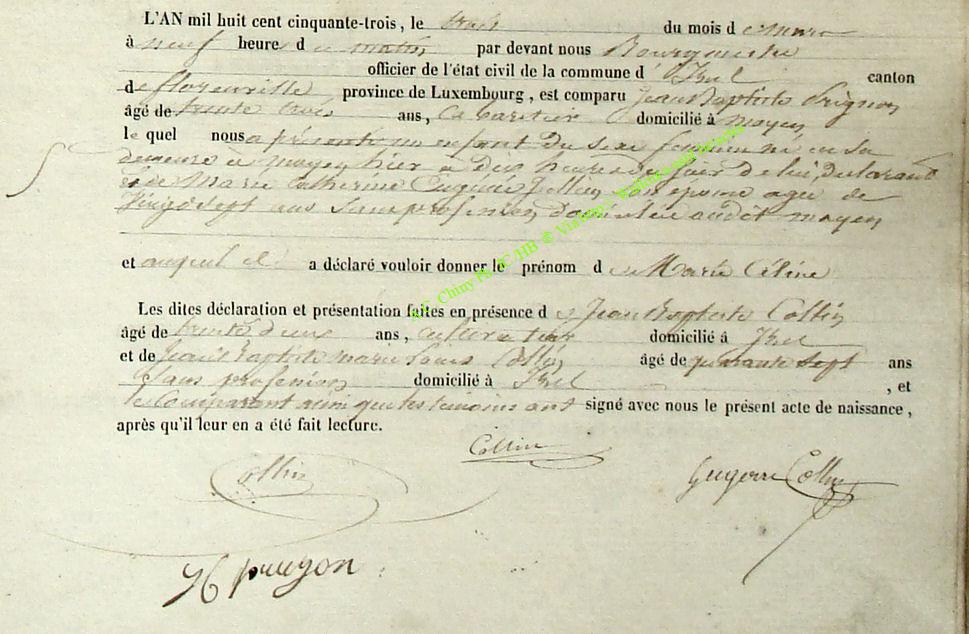 L'AN mil huit cent cinquante-trois, le trois du mois de Mars
à neuf heure d u matin par devant nous Bourgmestre
officier de l'état civil de la commune d' Izel canton
de florenville province de Luxembourg, est comparu Jean Baptiste
âgé de trente trois ans, Cabartier domicilié à moyen
le quel nous a présenté un enfant du sexe feminin né en sa
demeure à moyen hier à dix heures du soir de lui, declarant
et de Marie Catherine Eugenie Collin son epouse agée de
Vingt sept ans sans profession domiciliée audit moyen
et auquel il a déclaré vouloir donner le prénom de Marie Céline
Les dites déclaration et présentation faites en présence de Jean Baptiste Collin
âgé de trente deux ans, cultivateur domicilié à Izel
et de Jean Baptiste marie Louis Collin âgé de quarante sept ans
Sans profession domicilié à Izel, et
le Comparant ainsi que les temoins ont signé avec nous le présent acte de naissance,
après qu'il leur en a été fait lecture.
Collin
Collin
Collin